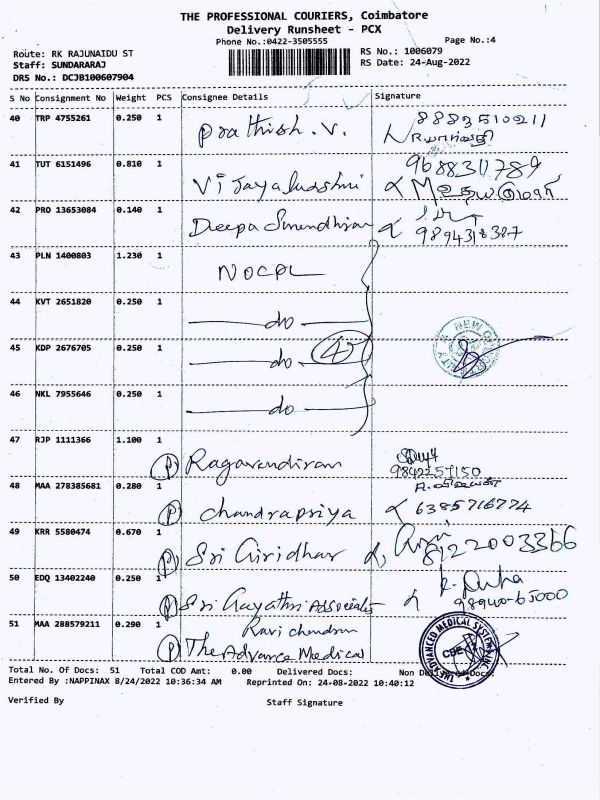 THE PROFESSIONAL COURIERS, Coimbatore
Delivery Runsheet - PCX
Phone No.:0422-3505555
Page No.:4
Route: RK RAJUNAIDU ST
RS No.: 1006079
Staff: SUNDARARAJ
RS Date: 24-Aug-2022
DRS No.: DCJB100607904
S No Consignment No Weight PCS Consignee Details Signature
40 TRP 4755261 0.250 1
Prathish. V.
41 TUT 6151496 0.810 1
9688311789
Vijayalakshmi
42 PRO 13653084 0.140 1
Deepa
43 PLN 1400803 1.230 1
NOCPL
44 KVT 2651820 0.250 1
do
45 KDP 2676705 0.250 1
do
46 NKL 7955646 0.250 1
do
47 RJP 1111366 1.100 1
(P) Ragavendiran
9842257150
48 MAA 278385681 0.280 1
(P) chandrapriya 6385716774
49 KRR 5580474 0.670 1
(P) Sri Giridhar 8122003366
50 EDQ 13402240 0.250 1
(P) Sri Gayathri Associates 98940-65000
51 MAA 288579211 0.290 1
Ravi chandran
(P) The Advance Medical
THE ADVANCED MEDICAL SYSTEMS
CBE
Total No. Of Docs: 51 Total COD Amt: 0.00 Delivered Docs: Non Delivered Docs:
Entered By :NAPPINAX 8/24/2022 10:36:34 AM Reprinted On: 24-08-2022 10:40:12
Verified By Staff Signature